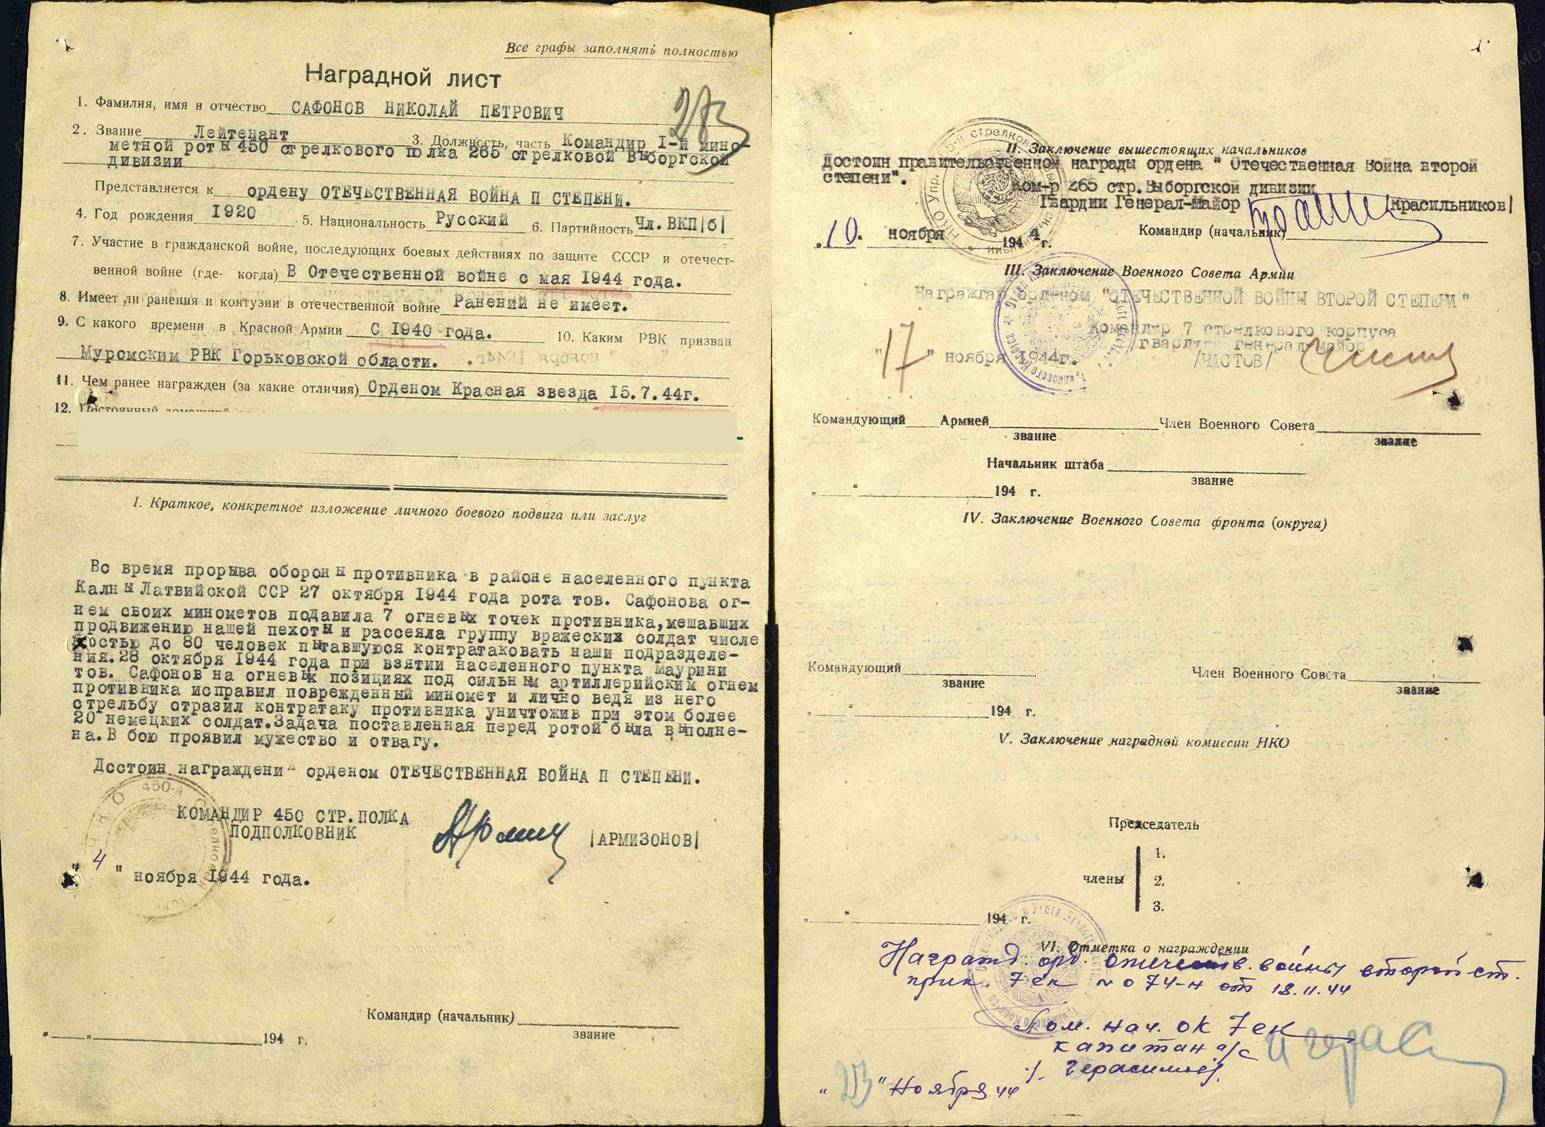 Все графы заполнять полностью
Наградной лист
283
1. Фамилия, имя и отчество САФОНОВ НИКОЛАЙ ПЕТРОВИЧ
2. Звание Лейтенант 3. Должность, часть Командир I-й мино-
метной роты 450 стрелкового полка 265 стрелковой Выборгской
дивизии
Представляется к ордену ОТЕЧЕСТВЕННАЯ ВОЙНА П СТЕПЕНИ.
4. Год рождения 1920 5. Национальность Русский 6. Партийность Чл.ВКП|б|
7. Участие в гражданской войне, последующих боевых действиях по защите СССР и отечест-
венной войне (где- когда) В Отечественной войне с мая 1944 года.
8. Имеет ли ранения и контузии в отечественной войне Ранений не имеет.
9. С какого времени в Красной Армии С 1940 года. 10. Каким РВК призван
Муромским РВК Горьковской области.
11. Чем ранее награжден (за какие отличия) Орденом Красная звезда 15.7.44г.
12. Постоянный домашний
I. Краткое, конкретное изложение личного боевого подвига или заслуг
Во время прорыва обороны противника в районе населенного пункта
Калны Латвийской ССР 27 октября 1944 года рота тов. Сафонова ог-
нем своих минометов подавила 7 огневых точек противника, мешавших
продвижению нашей пехоты и рассеяла группу вражеских солдат числе
ностью до 80 человек пытавшуюся контратаковать наши подразделе-
ния. 28 октября 1944 года при взятии населенного пункта Маурини
тов. Сафонов на огневых позициях под сильным артиллерийским огнем
противника исправил поврежденный миномет и лично ведя из него
стрельбу отразил контратаку противника уничтожив при этом более
20 немецких солдат. Задача поставленная перед ротой была выполне-
на. В бою проявил мужество и отвагу.
Достоин награждени орденом ОТЕЧЕСТВЕННАЯ ВОЙНА П СТЕПЕНИ.
КОМАНДИР 450 СТР. ПОЛКА
ПОДПОЛКОВНИК |АРМИЗОНОВ|
"4" ноября 1944 года.
Командир (начальник)
звание
"  " 194 г.
II. Заключение вышестоящих начальников
Достоин правительственном награды ордена "Отечественная Война второй
степени".
Ком-р 265 стр. Выборгской дивизии
Гвардии Генерал-Майор |Красильников|
Командир (начальник)
"10. ноября 1944 г.
III. Заключение Военного Совета Армии
Награждаю орденом "ОТЕЧЕСТВЕННОЙ ВОЙНЫ ВТОРОЙ СТЕПЕНИ"
Командир 7 стрелкового корпуса
гвардии генерал-майор
/ЧАСТОВ/
"17" ноября 1944г.
Командующий Армией Член Военного Совета
звание звание
Начальник штаба
звание
"  " 194 г.
IV. Заключение Военного Совета фронта (округа)
Командующий Член Военного Совета
звание звание
"  " 194 г.
V. Заключение наградной комиссии НКО
Председатель
члены
1.
2.
3.
"  " 194 г.
VI. Отметка о награждении
Награжд. орд. отечеств. войны второй ст.
прик. 7 ск №074-н от 18.11.44
Пом. нач. ОК 7 ск
капитан а/с
/. Герасимов/
"23" Ноября 44